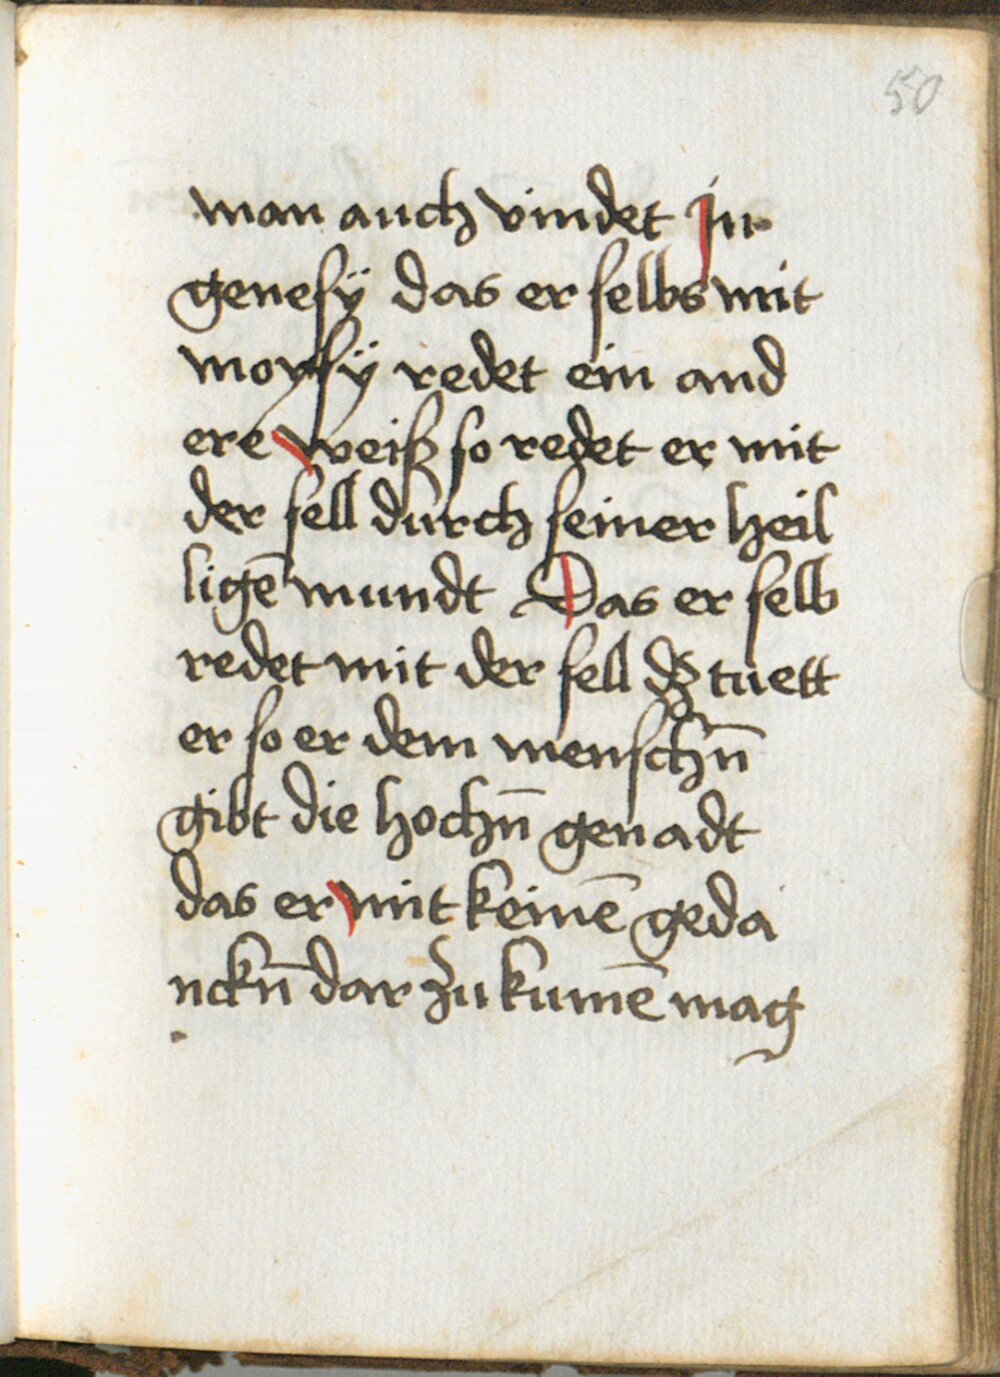 50
man auch vindet jn
genesÿ das er selbs mit
moysÿ redet ein and
ere weiß so redet er mit
der sell durch seiner heil
ligē mundt Das er selb
redet mit der sell dʒ tuett
er so er dem menschn̄
gibt die hochn̄ genadt
das er mit keinē geda
nckn̄ dar zu kumē mag